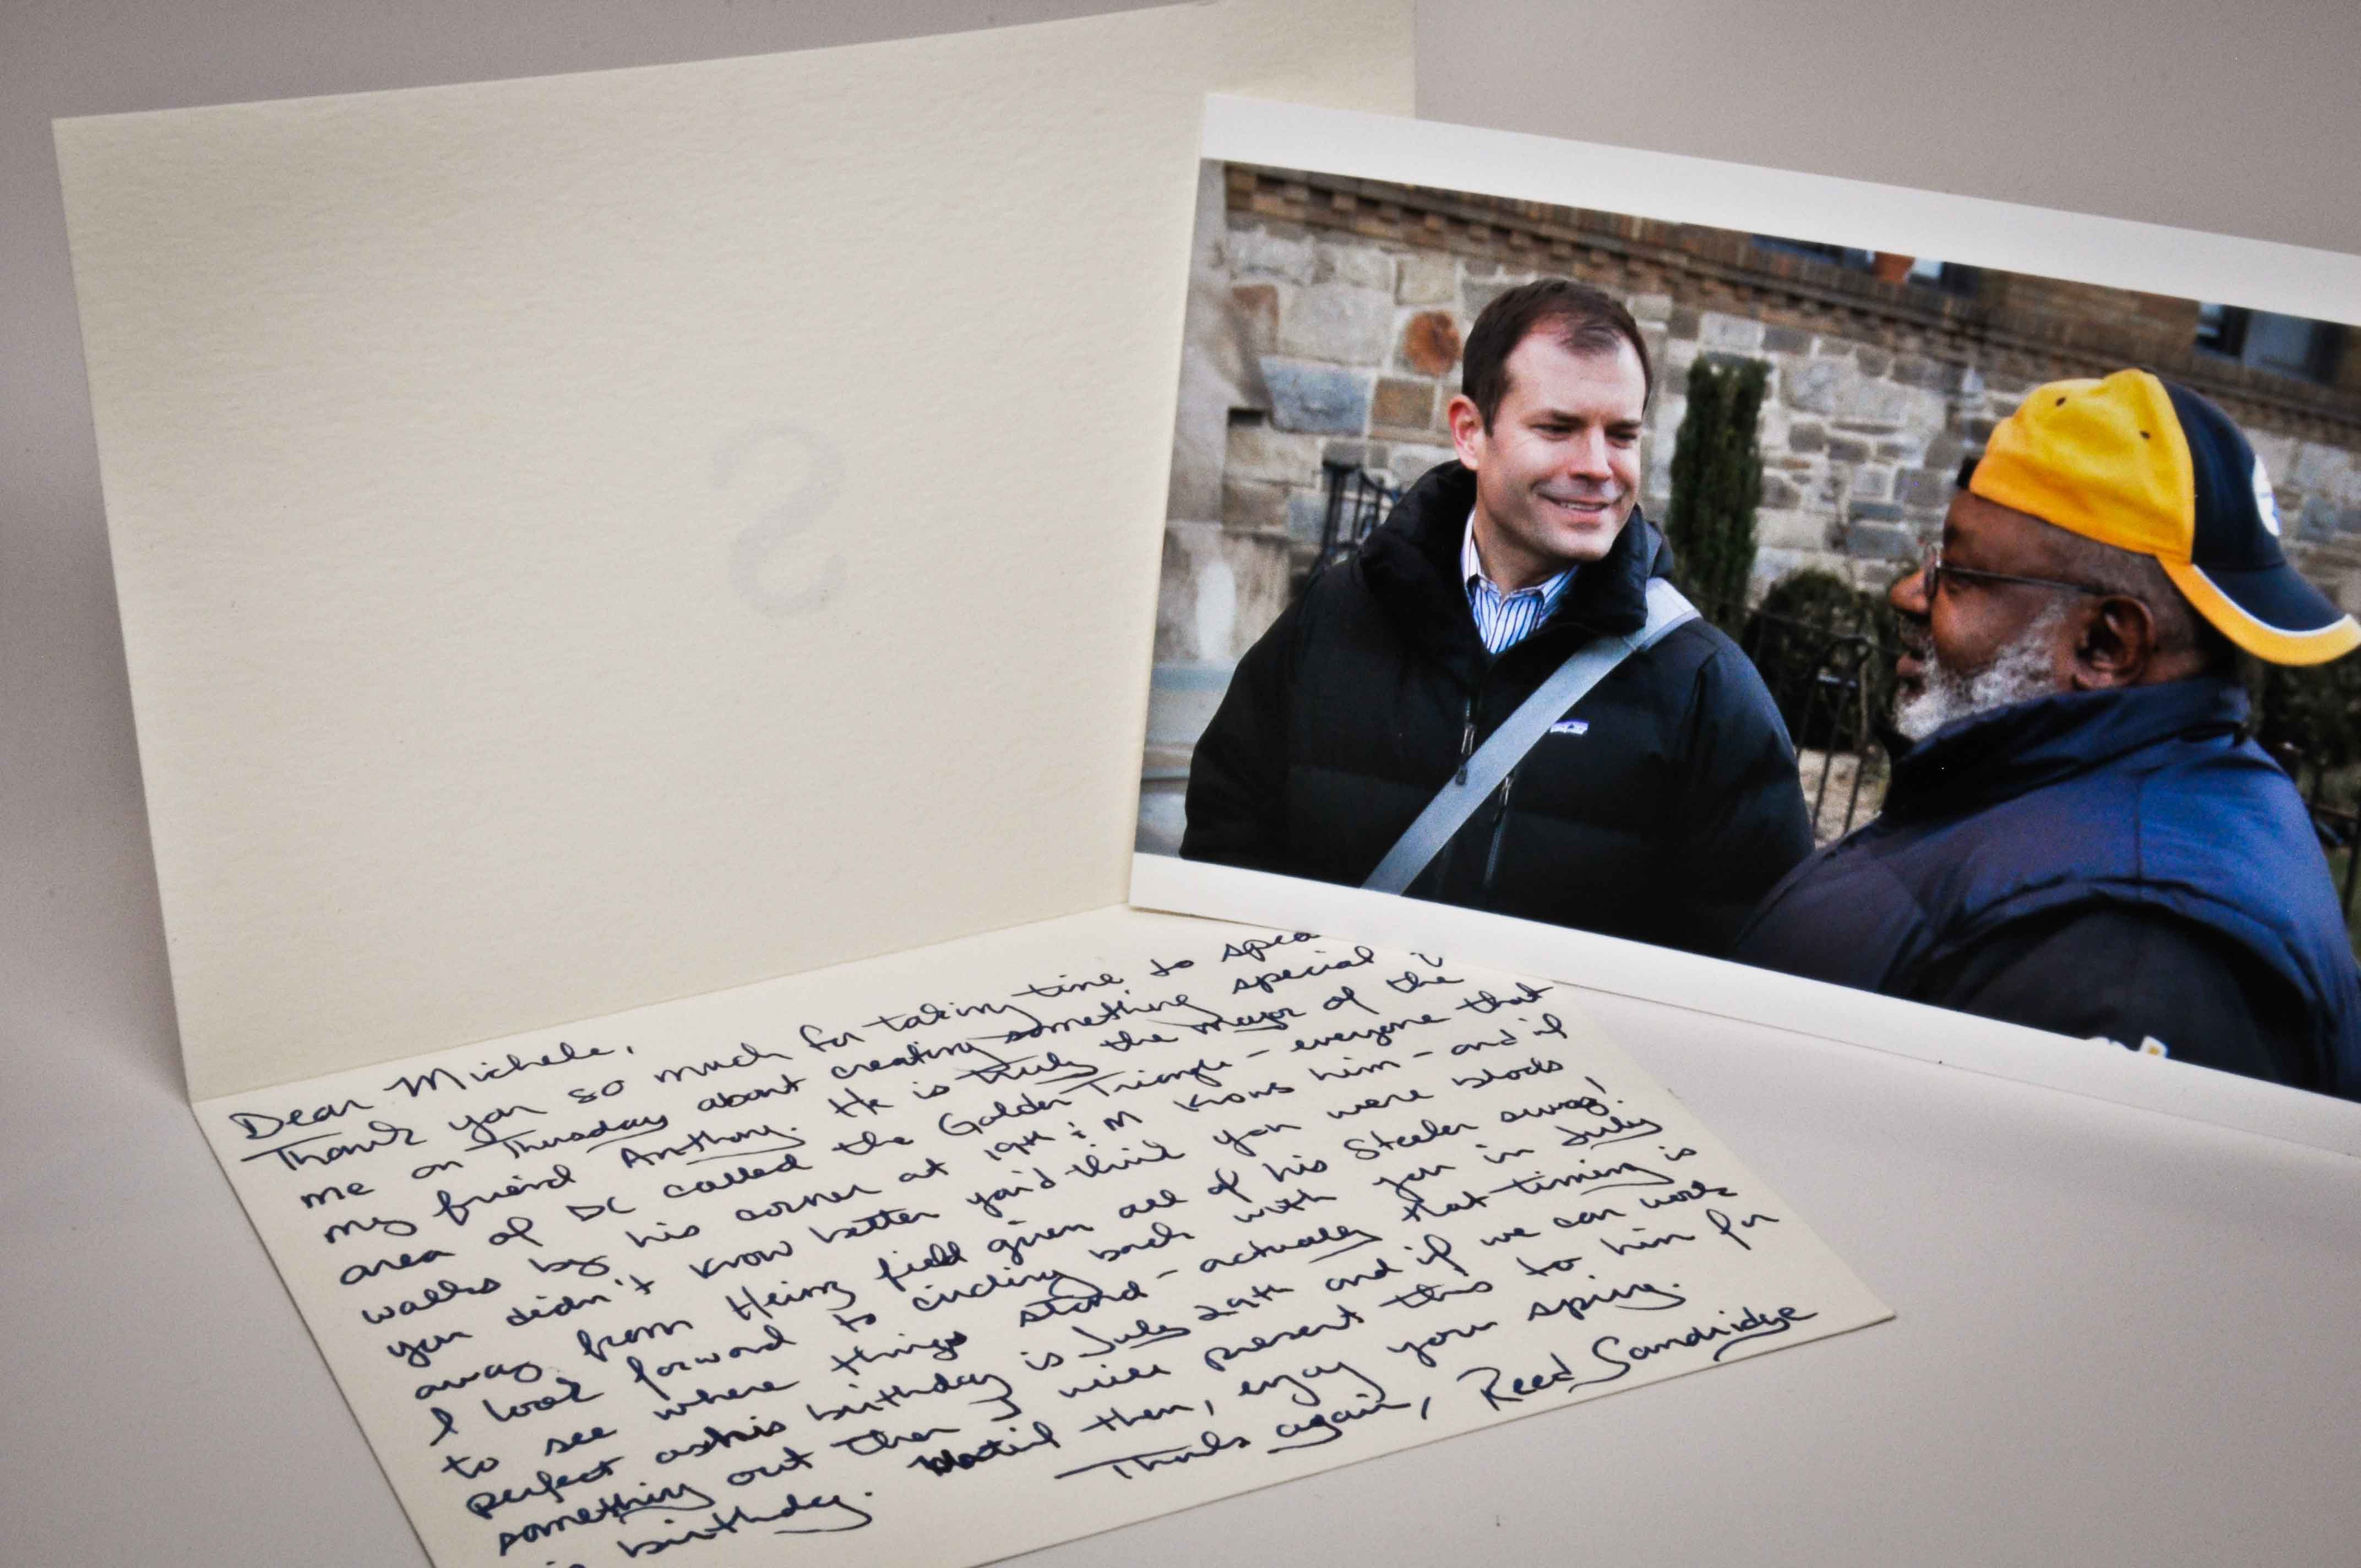 S
Dear Michele,
Thank you so much for taking time to spea
me on Thursday about creating something special
my friend Anthony. He is truly the mayor of the
area of DC called the Golden Triangle - everyone that
walks by his corner at 19th & M knows him - and if
you didn't know better you'd think you were blocks
away from Heinz field given all of his Steeler swag!
I look forward to circling back with you in July
to see where things stand - actually that timing is
perfect as his birthday is July 29th and if we can work
something out then I will present this to him for
birthday. Until then, enjoy your spring.
Thanks again, Reed Sandridge